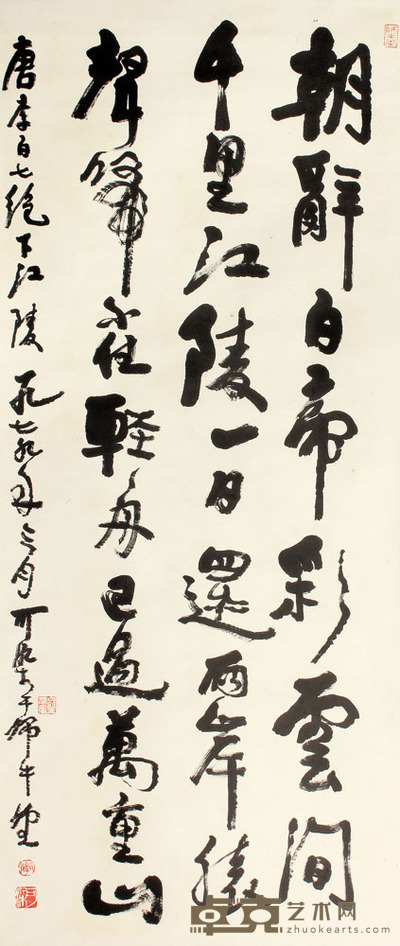 朝辭白帝彩雲間
千里江陵一日還兩岸猿
聲啼不住輕舟已過萬重山
唐李白七絕下江陵 一九七九年三月 可染書于師牛堂
卓克艺术网
zhuokearts.com